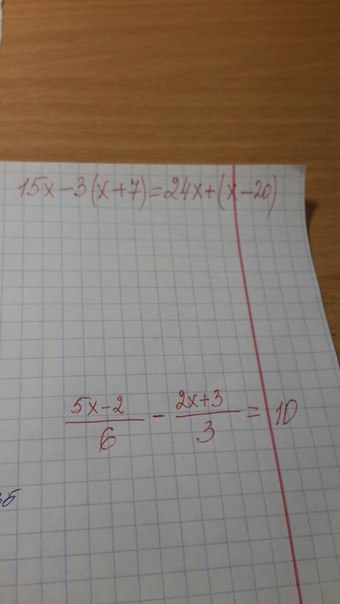 15x-3(x+7)=24x+(x-20)
5x-2/6 - 2x+3/3 = 10